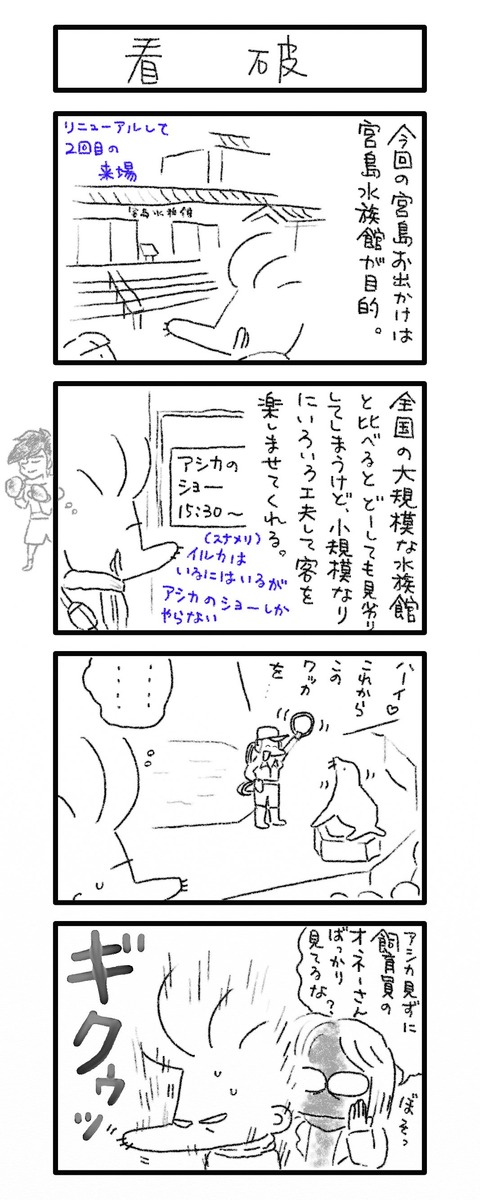 看破
今回の宮島お出かけは
宮島水族館が目的。
リニューアルして
2回目の
来場
宮島水族館
全国の大規模な水族館
と比べると どーしても見劣り
してしまうけど、小規模なり
にいろいろ工夫して客を
楽しませてくれる。
アシカの
ショー
15:30～
(スナメリ)
イルカは
いるにはいるが
アシカのショーしか
やらない
ハーイ♡
これから
この
ワッカ
を
……
アシカ見ずに
飼育員の
オネーさん
ばっかり
見てるな?
ぼそっ
ギクゥッ